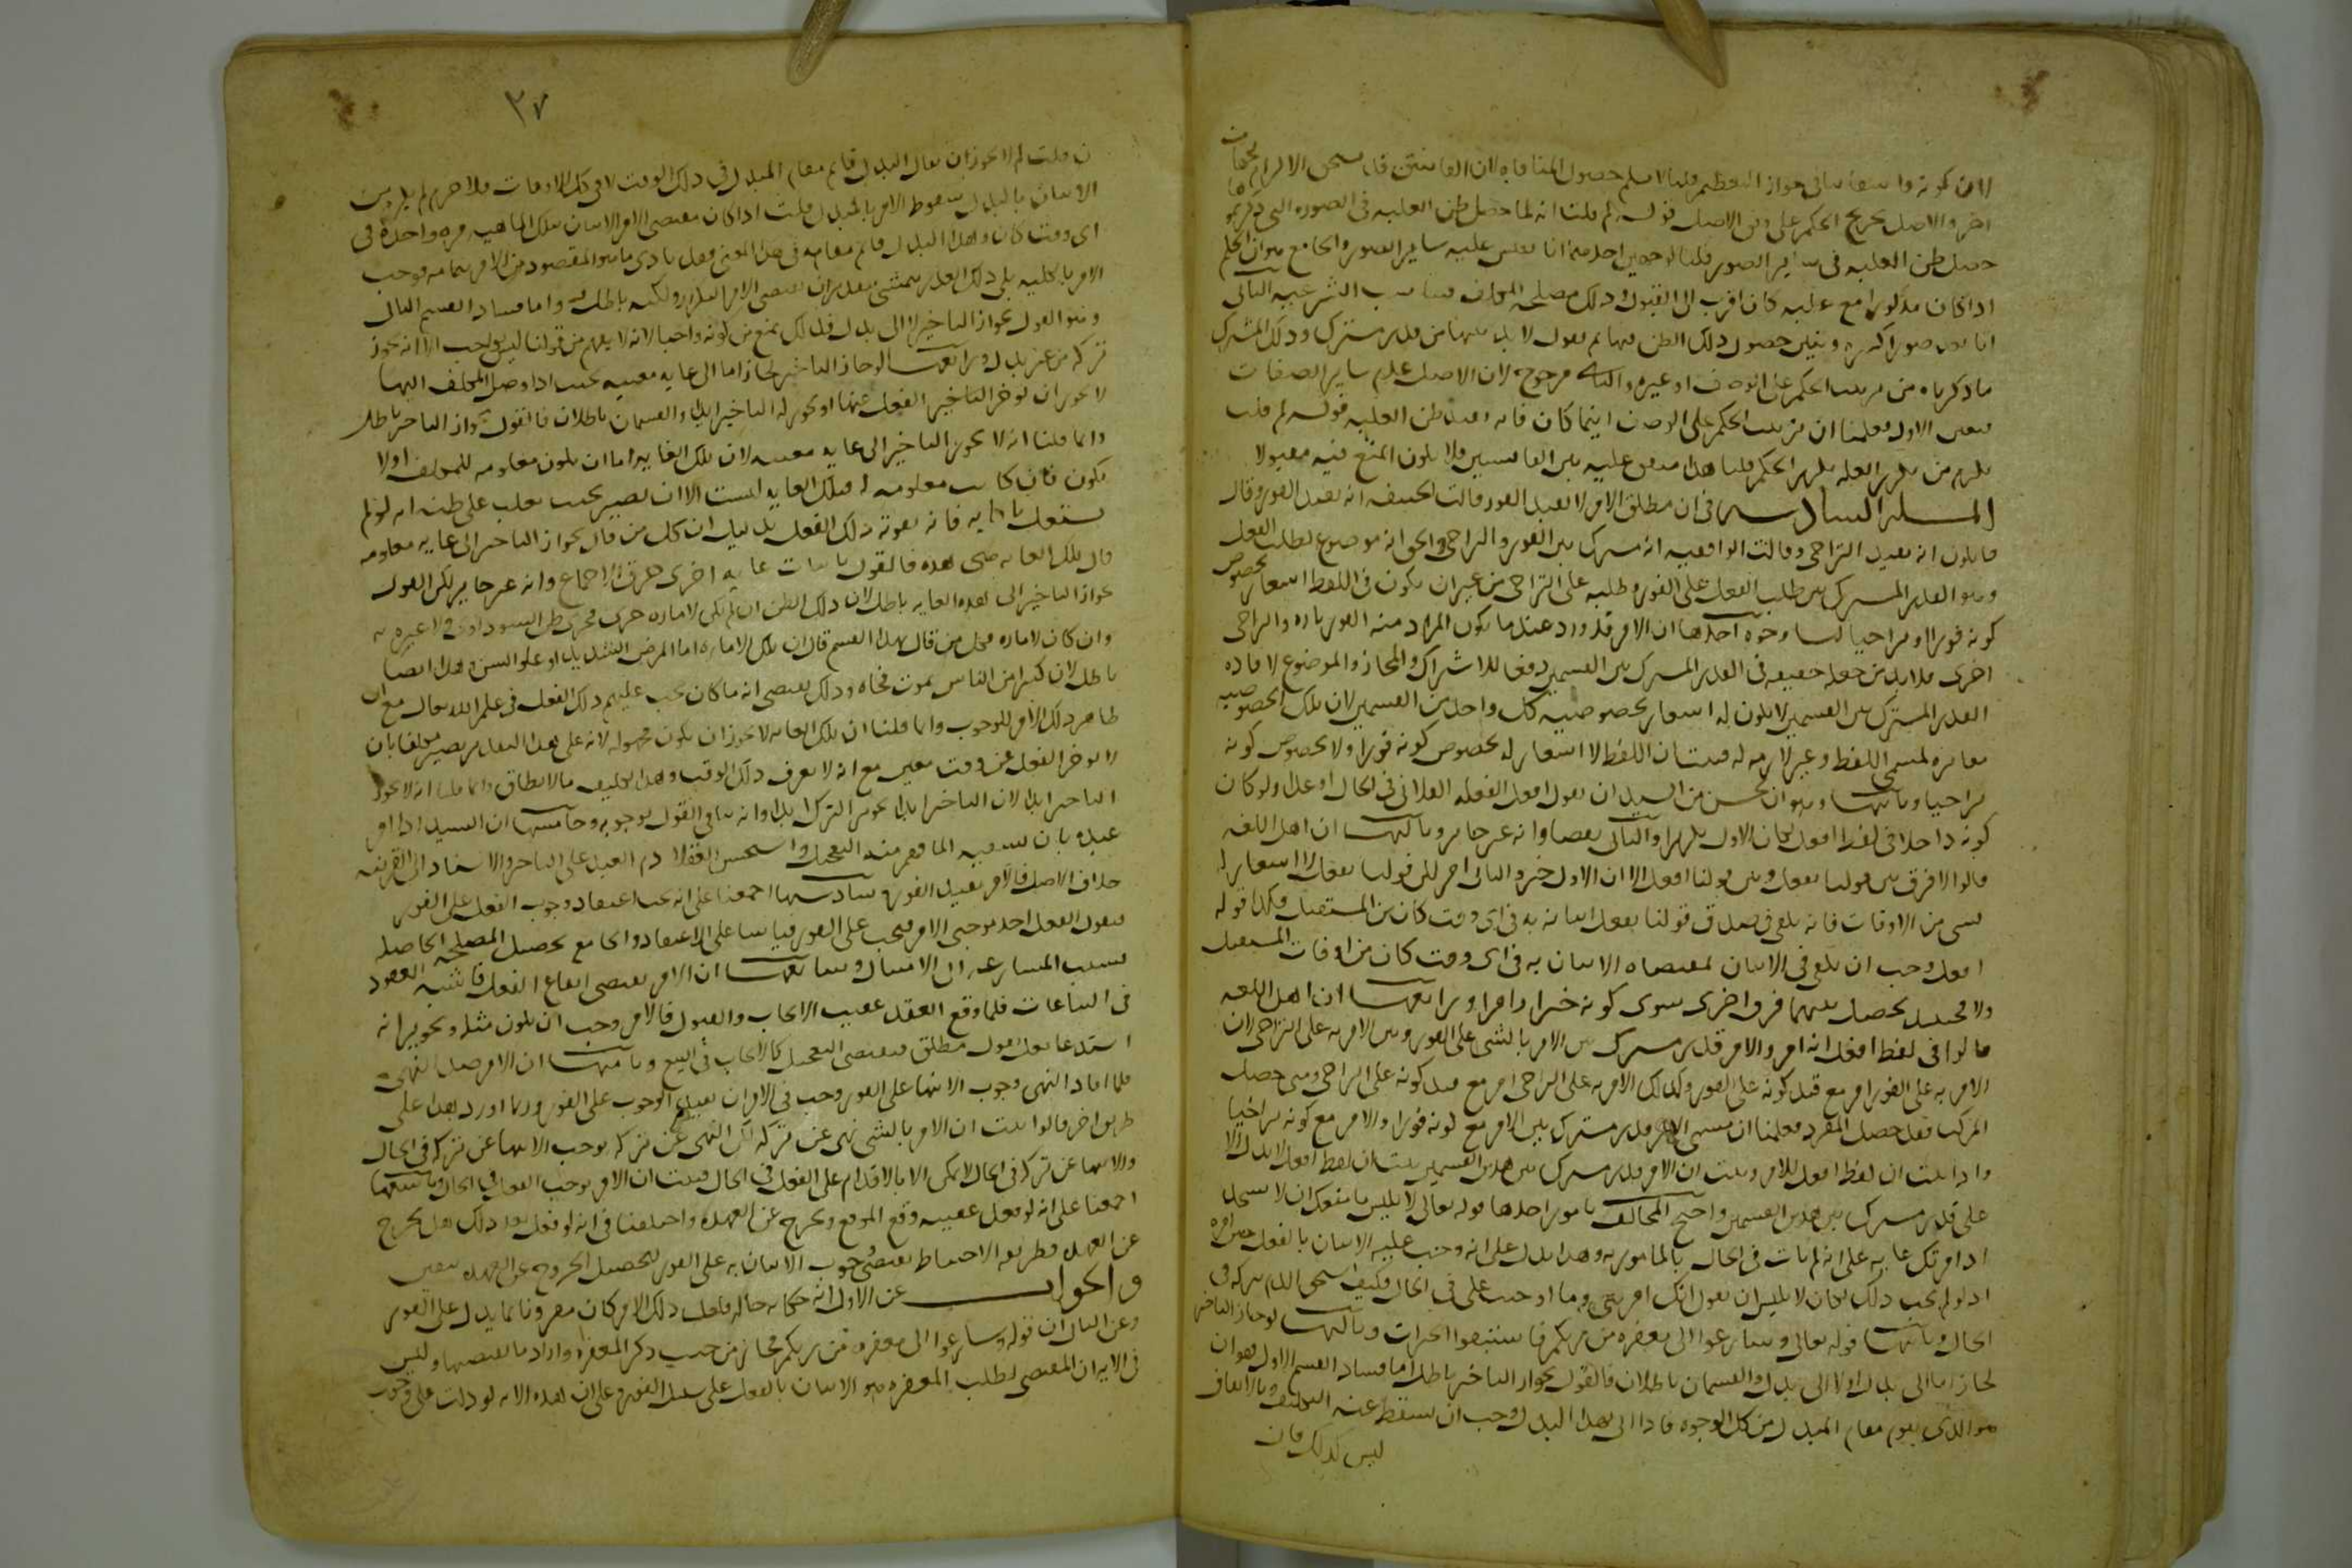 لان كونه فاسقا ينافي جواز التعظيم قلنا لا نسلم حصول المنافاة لان الفاسق قد يستحق الاكرام بجهات
اخر والاصل تخريج الحكم على وفق الاصل قوله لم قلتم انه لما حصل ظن العلية في الصورة التي ذكرتموها
حصل ظن العلية في ساير الصور قلنا لوجهين احدهما انا نقيس عليه ساير الصور والجامع هو ان الحكم
اذا كان مذكورا مع علته كان اقرب الى القبول وذلك مصلحة المكلف فيناسب الشرعية الثاني
انا نعد صورا كثيرة ونبين حصول ذلك الظن فيها ثم نقول لا بد بينها من قدر مشترك وذلك المشترك
ما ذكرناه من ترتيب الحكم على الوصف او غيره والثاني مرجوح لان الاصل عدم ساير الصفات
فتعين الاول فعلمنا ان ترتيب الحكم على الوصف اينما كان فانه يفيد ظن العلية قوله لم قلت
يلزم من تكرر العلة تكرر الحكم قلنا هذا متفق عليه بين القائسين فلا يكون المنع فيه مقبولا
المسلة السادسة في ان مطلق الامر لا يفيد الفور قالت الحنفية انه يفيد الفور وقال
قايلون انه يفيد التراخي وقالت الواقفية انه مشترك بين الفور والتراخي والحق انه موضوع لطلب الفعل
وهو القدر المشترك بين طلب الفعل على الفور وطلبه على التراخي من غير ان يكون في اللفظ اشعار بخصوص
كونه فورا او تراخيا لنا وجوه احدها ان الامر قد ورد عندما يكون المراد منه الفور تارة والتراخي
اخرى فلا بد من جعله حقيقة في القدر المشترك بين القسمين دفعا للاشتراك والمجاز والموضوع لافادة
القدر المشترك بين القسمين لا يكون له اشعار بخصوصية كل واحد من القسمين لان تلك الخصوصية
مغايرة لمسمى اللفظ وغير لازمة له فثبت ان اللفظ لا اشعار له بخصوص كونه فورا ولا بخصوص كونه
تراخيا وثانيها وهو انه يحسن من السيد ان يقول افعل الفعلة الفلاني في الحال او غدا ولو كان
كونه داخلا في لفظ افعل لكان الاول تكرارا والثاني نقضا وانه غير جايز وثالثها ان اهل اللغة
قالوا لا فرق بين قولنا يفعل وبين قولنا افعل الا ان الاول خبر والثاني امر لكن قولنا يفعل لا اشعار له
بشي من الاوقات فانه يكفي في صدق قولنا يفعل اتيانه به في اي وقت كان من المستقبل فكذا قوله
افعل وجب ان يكفي في الاتيان بمقتضاه الاتيان به في اي وقت كان من اوقات المستقبل
والا فحينئذ يحصل بينهما فرق اخرى سوى كونه خبرا وامرا ورابعها ان اهل اللغة
قالوا في لفظ افعل انه امر والامر قدر مشترك بين الامر بالشي على الفور وبين الامر به على التراخي لان
الامر به على الفور امر مع قيد كونه على الفور وكذلك الامر به على التراخي امر مع قيد كونه على التراخي ومتى حصل
المركب فقد حصل المفرد فعلمنا ان مسمى الامر قدر مشترك بين الامر مع كونه فورا والامر مع كونه تراخيا
واذا ثبت ان لفظ افعل للامر وثبت ان الامر قدر مشترك بين هذين القسمين ثبت ان لفظ افعل لا يدل الا
على قدر مشترك بين هذين القسمين واحتج المخالف بامور احدها قوله تعالى لابليس ما منعك ان لا تسجد
اذ امرتك عابه على انه لم يات في الحال بالمامور به وهذا يدل على انه وجب عليه الاتيان بالفعل حين امره
اذ لو لم يجب ذلك لكان لابليس ان يقول انك امرتني وما اوجبت علي في الحال فكيف استحق الذم بتركه في
الحال وثانيها قوله تعالى وسارعوا الى مغفرة من ربكم فاستبقوا الخيرات وثالثها لو جاز التاخير
لجاز اما الى بدل او لا الى بدل والقسمان باطلان فالقول بجواز التاخير باطل اما فساد القسم الاول فهو ان
هو الذي يقوم مقام المبدل من كل الوجوه فاذا اتى بهذا البدل وجب ان يسقط عنه التكليف وبالاتفاق
ليس كذلك فان
٢٧
ن قلت لم لا يجوز ان يقال البدل قايم مقام المبدل في ذلك الوقت لا في كل الاوقات فلا جرم لم يلزم من
الاتيان بالبدل سقوط الامر بالمبدل قلت اذا كان مقتضى الامر الاتيان بتلك الماهية مرة واحدة في
اي وقت كان وهذا البدل قايم مقامه في هذا المعنى فقد تادى ما هو المقصود من الامر بتمامه فوجب
الامر بالكلية بلى ذلك العذر يتمشى بتقدير ان يقتضي الامر التكرار ولكنه باطل واما فساد القسم الثاني
وهو القول بجواز التاخير لا الى بدل فذلك يمنع من كونه واجبا لانه لا يفهم من قولنا ليس بواجب الا انه يجوز
تركه من غير بدل ورابعها لو جاز التاخير لجاز اما الى غاية معينة بحيث اذا وصل المكلف اليها
لا يجوز ان يوخر التاخير الفعل عنها او يجوز له التاخير ابدا والقسمان باطلان فالقول بجواز التاخير باطل
وانما قلنا انه لا يجوز التاخير الى غاية معينة لان تلك الغاية اما ان يكون معلومة للمكلف او لا
يكون فان كانت معلومة له فتلك الغاية ليست الا ان يصير بحيث يغلب على ظنه انه لو لم
يشتغل بادايه فانه يفوته ذلك الفعل بدليل ان كل من قال بجواز التاخير الى غاية معلومة
قال تلك الغاية هي هذه فالقول باثبات غاية اخرى خرق للاجماع وانه غير جايز لكن القول
بجواز التاخير الى هذه الغاية باطل لان ذلك الظن ان لم يكن لامارة جرى مجرى ظن السوداوي فلا عبرة به
وان كان لامارة فكل من قال بهذا القسم قال ان تلك الامارة اما المرض الشديد او علو السن وهذا ايضا
باطل لان كثيرا من الناس يموت فجاة وذلك يقتضي انه ما كان يجب عليهم ذلك الفعل في علم الله تعالى مع ان
ظاهر ذلك الامر للوجوب وانما قلنا ان تلك الغاية لا يجوز ان يكون مجهولة لانه على هذا التقدير يصير مكلفا بان
لا يوخر الفعل عن وقت معين مع انه لا يعرف ذلك الوقت وهذا تكليف ما لا يطاق وانما قلنا انه لا يجوز
التاخير ابدا لان التاخير ابدا تجويز الترك ابدا وانه ينافي القول بوجوبه وخامسها ان السيد اذا امر
عبده بان يسقيه الما فهم منه التعجيل واستحسن العقلا ذم العبد على التاخير والاسناد الى القرينة
خلاف الاصل فالامر يفيد الفور وسادسها اجمعنا على انه يجب اعتقاد وجوب الفعل على الفور
فنقول الفعل احد موجبي الامر فيجب على الفور قياسا على الاعتقاد والجامع تحصيل المصلحة الحاصلة
بسبب المسارعة الى الامتثال وسابعها ان الامر يقتضي ايقاع الفعل فاشبه العقود
في البياعات فلما وقع العقد عقيب الايجاب والقبول فالامر وجب ان يكون مثله وتحريره انه
استدعا بقول مطلق فيقتضي التعجيل كالايجاب في البيع وثامنها ان الامر ضد النهي
فلما افاد النهي وجوب الانتها على الفور وجب في الامر ان يفيد الوجوب على الفور وربما اورد هذا على
طريق اخر قالوا ثبت ان الامر بالشي نهي عن تركه لكن النهي عن تركه يوجب الانتها عن تركه في الحال
والانتها عن تركه في الحال لا يمكن الا بالاقدام على الفعل في الحال فثبت ان الامر يوجب الفعل في الحال وتاسعها
اجمعنا على انه لو فعل عقيبه وقع الموقع وخرج عن العهدة واختلفنا في انه لو فعل بعد ذلك هل يخرج
عن العهدة وطريقة الاحتياط يقتضي وجوب الاتيان به على الفور لتحصيل الخروج عن العهدة بيقين
والجواب عن الاول انه حكاية حال فلعل ذلك الامر كان مقرونا بما يدل على الفور
وعن الثاني ان قوله وسارعوا الى مغفرة من ربكم مجاز من حيث ذكر المغفرة واراد ما يقتضيها وليس
في الاية ان المقتضي لطلب المغفرة هو الاتيان بالفعل على سبيل الفور وعلى ان هذه الاية لو دلت على وجوب